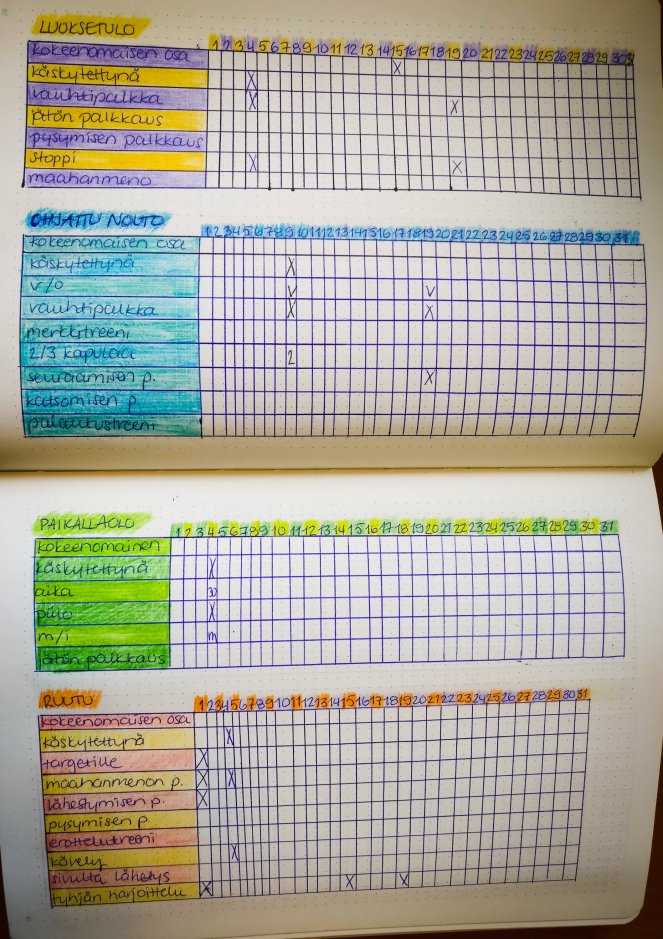 LUOKSETULO
1 2 3 4 5 6 7 8 9 10 11 12 13 14 15 16 17 18 19 20 21 22 23 24 25 26 27 28 29 30 31
kokeenomaisen osa X
käskytettynä X
vauhtipalkka X X
jätön palkkaus
pysymisen palkkaus
stoppi X X
maahanmeno
OHJATTU NOUTO
1 2 3 4 5 6 7 8 9 10 11 12 13 14 15 16 17 18 19 20 21 22 23 24 25 26 27 28 29 30 31
kokeenomaisen osa
käskytettynä X
v/o v v
vauhtipalkka X X
merkkitreeni
2/3 kapulaa 2
seuraamisen p. X
katsomisen p
palautustreeni
PAIKALLAOLO
1 2 3 4 5 6 7 8 9 10 11 12 13 14 15 16 17 18 19 20 21 22 23 24 25 26 27 28 29 30 31
kokeenomainen
käskytettynä X
aika
piilo X
m/i m
jätön palkkaus
RUUTU
1 2 3 4 5 6 7 8 9 10 11 12 13 14 15 16 17 18 19 20 21 22 23 24 25 26 27 28 29 30 31
kokeenomaisen osa
käskytettynä X
targetille X
maahanmenon p. X X
lähestymisen p. X
pysymisen p
erottelutreeni
kävely X
sivulta lähetys X X
tyhjän harjoittelu X